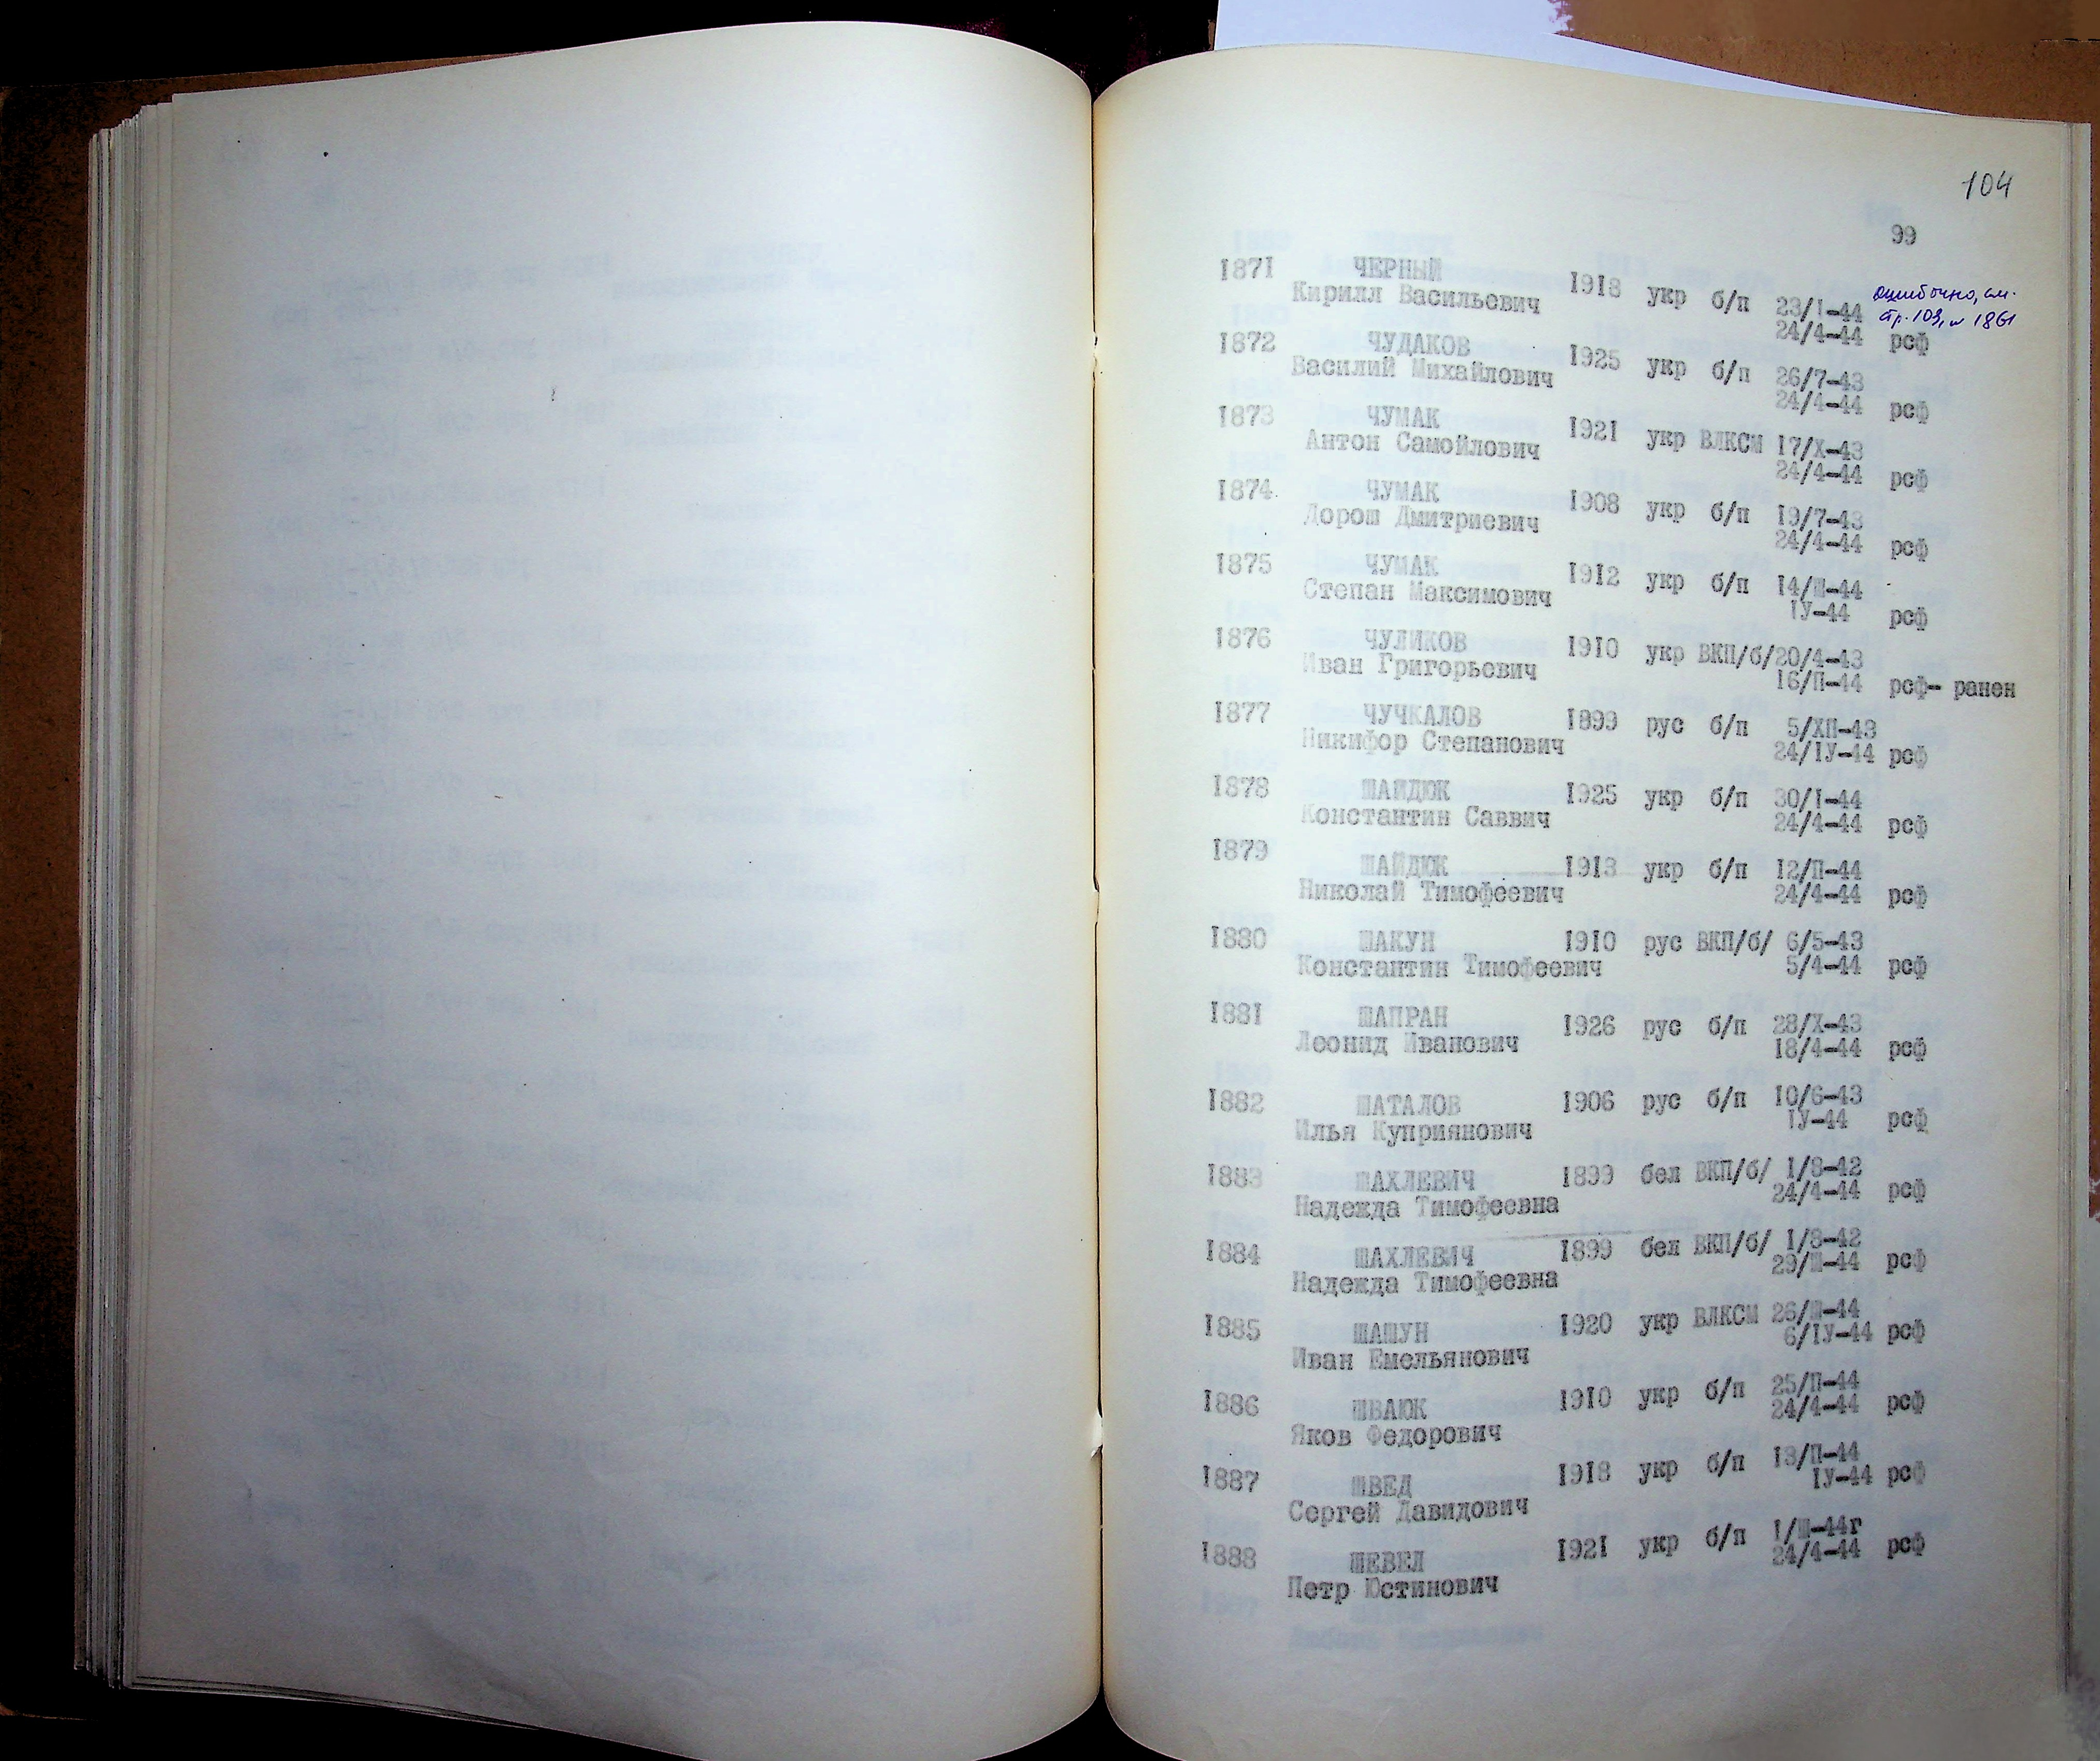 104
99
1871 ЧЕРНЫЙ 1918 укр б/п 23/I-44 ошибочно, см.
Кирилл Васильевич 24/4-44 рсф стр. 103, № 1861
1872 ЧУДАКОВ 1925 укр б/п 26/7-43
Василий Михайлович 24/4-44 рсф
1873 ЧУМАК 1921 укр ВЛКСМ 17/X-43
Антон Самойлович 24/4-44 рсф
1874 ЧУМАК 1908 укр б/п 19/7-43
Дорош Дмитриевич 24/4-44 рсф
1875 ЧУМАК 1912 укр б/п 14/Ш-44
Степан Максимович IУ-44 рсф
1876 ЧУЛИКОВ 1910 укр ВКП/б/ 20/4-43
Иван Григорьевич 16/П-44 рсф- ранен
1877 ЧУЧКАЛОВ 1899 рус б/п 5/ХП-43
Никифор Степанович 24/IУ-44 рсф
1878 ШАЙДЮК 1925 укр б/п 30/I-44
Константин Саввич 24/4-44 рсф
1879 ШАЙДЮК 1913 укр б/п 12/П-44
Николай Тимофеевич 24/4-44 рсф
1880 ШАКУН 1910 рус ВКП/б/ 6/5-43
Константин Тимофеевич 5/4-44 рсф
1881 ШАПРАН 1926 рус б/п 28/X-43
Леонид Иванович 18/4-44 рсф
1882 ШАТАЛОВ 1906 рус б/п 10/6-43
Илья Куприянович IУ-44 рсф
1883 ШАХЛЕВИЧ 1899 бел ВКП/б/ 1/8-42
Надежда Тимофеевна 24/4-44 рсф
1884 ШАХЛЕВИЧ 1899 бел ВКП/б/ 1/8-42
Надежда Тимофеевна 29/Ш-44 рсф
1885 ШАШУН 1920 укр ВЛКСМ 26/Ш-44
Иван Емельянович 6/IУ-44 рсф
1886 ШВАЮК 1910 укр б/п 25/П-44
Яков Федорович 24/4-44 рсф
1887 ШВЕД 1918 укр б/п 13/П-44
Сергей Давидович IУ-44 рсф
1888 ШЕВЕЛ 1921 укр б/п 1/Ш-44г
Петр Юстинович 24/4-44 рсф